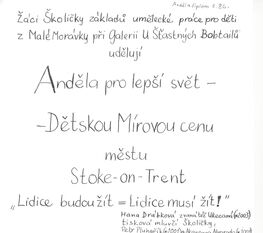 Žáci Školičky základů umělecké práce pro děti
z Malé Morávky při Galerii U Šťastných Bobtailů
udělují
Anděla pro lepší svět –
–Dětskou Mírovou cenu
městu
Stoke-on-Trent
„Lidice budou žít = Lidice musí žít!"
Hana
tisková mluvčí Školičky,